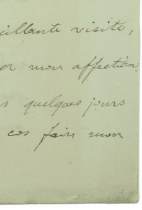 illante visite,
er mon affection
s quelques jours
cas faire mon